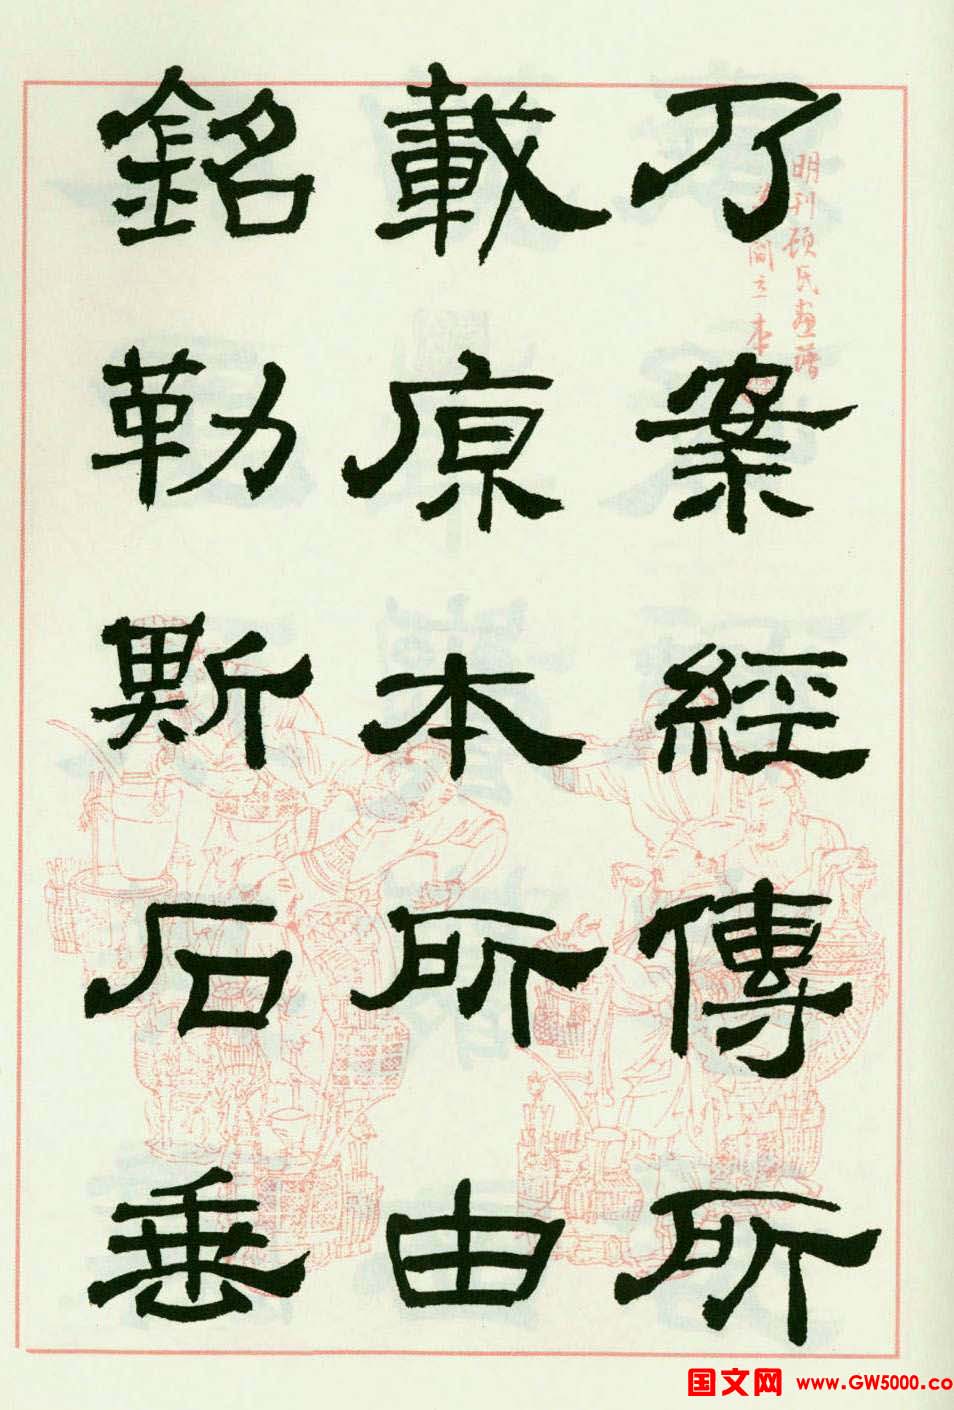 乃案經傳所
載原本所由
銘勒斯石垂
明刊顧氏畫譜
閻立本
国文网 www.GW5000.co